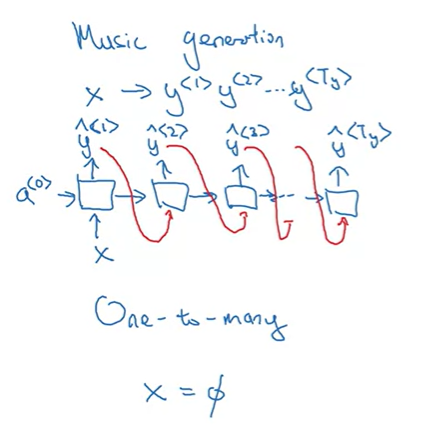 Music generation
x → y<1> y<2> ... y<Ty>
ŷ<1> ŷ<2> ŷ<3> ŷ<Ty>
a<0>
x
One-to-many
x = ϕ